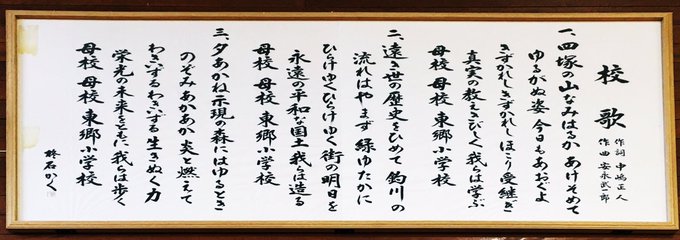 校歌
作詞 中嶋正人
作曲 安永武一郎
一、四塚の山なみはるか あけそめて
ゆるがぬ姿 今日もあおぐよ
きずかれしきずかれし ほこり受継ぎ
真実の教えきびしく 我らは学ぶ
母校 母校 東郷小学校
二、遠き世の歴史をひめて 釣川の
流れはやまず 緑ゆたかに
ひらけゆくひらけゆく 街の明日を
永遠の平和な国土 我らは造る
母校 母校 東郷小学校
三、夕あかね示現の森にはゆるとき
のぞみあかあか 炎と燃えて
わきいずるわきいずる 生きぬく力
栄光の未来をともに 我らは歩く
母校 母校 東郷小学校
かく